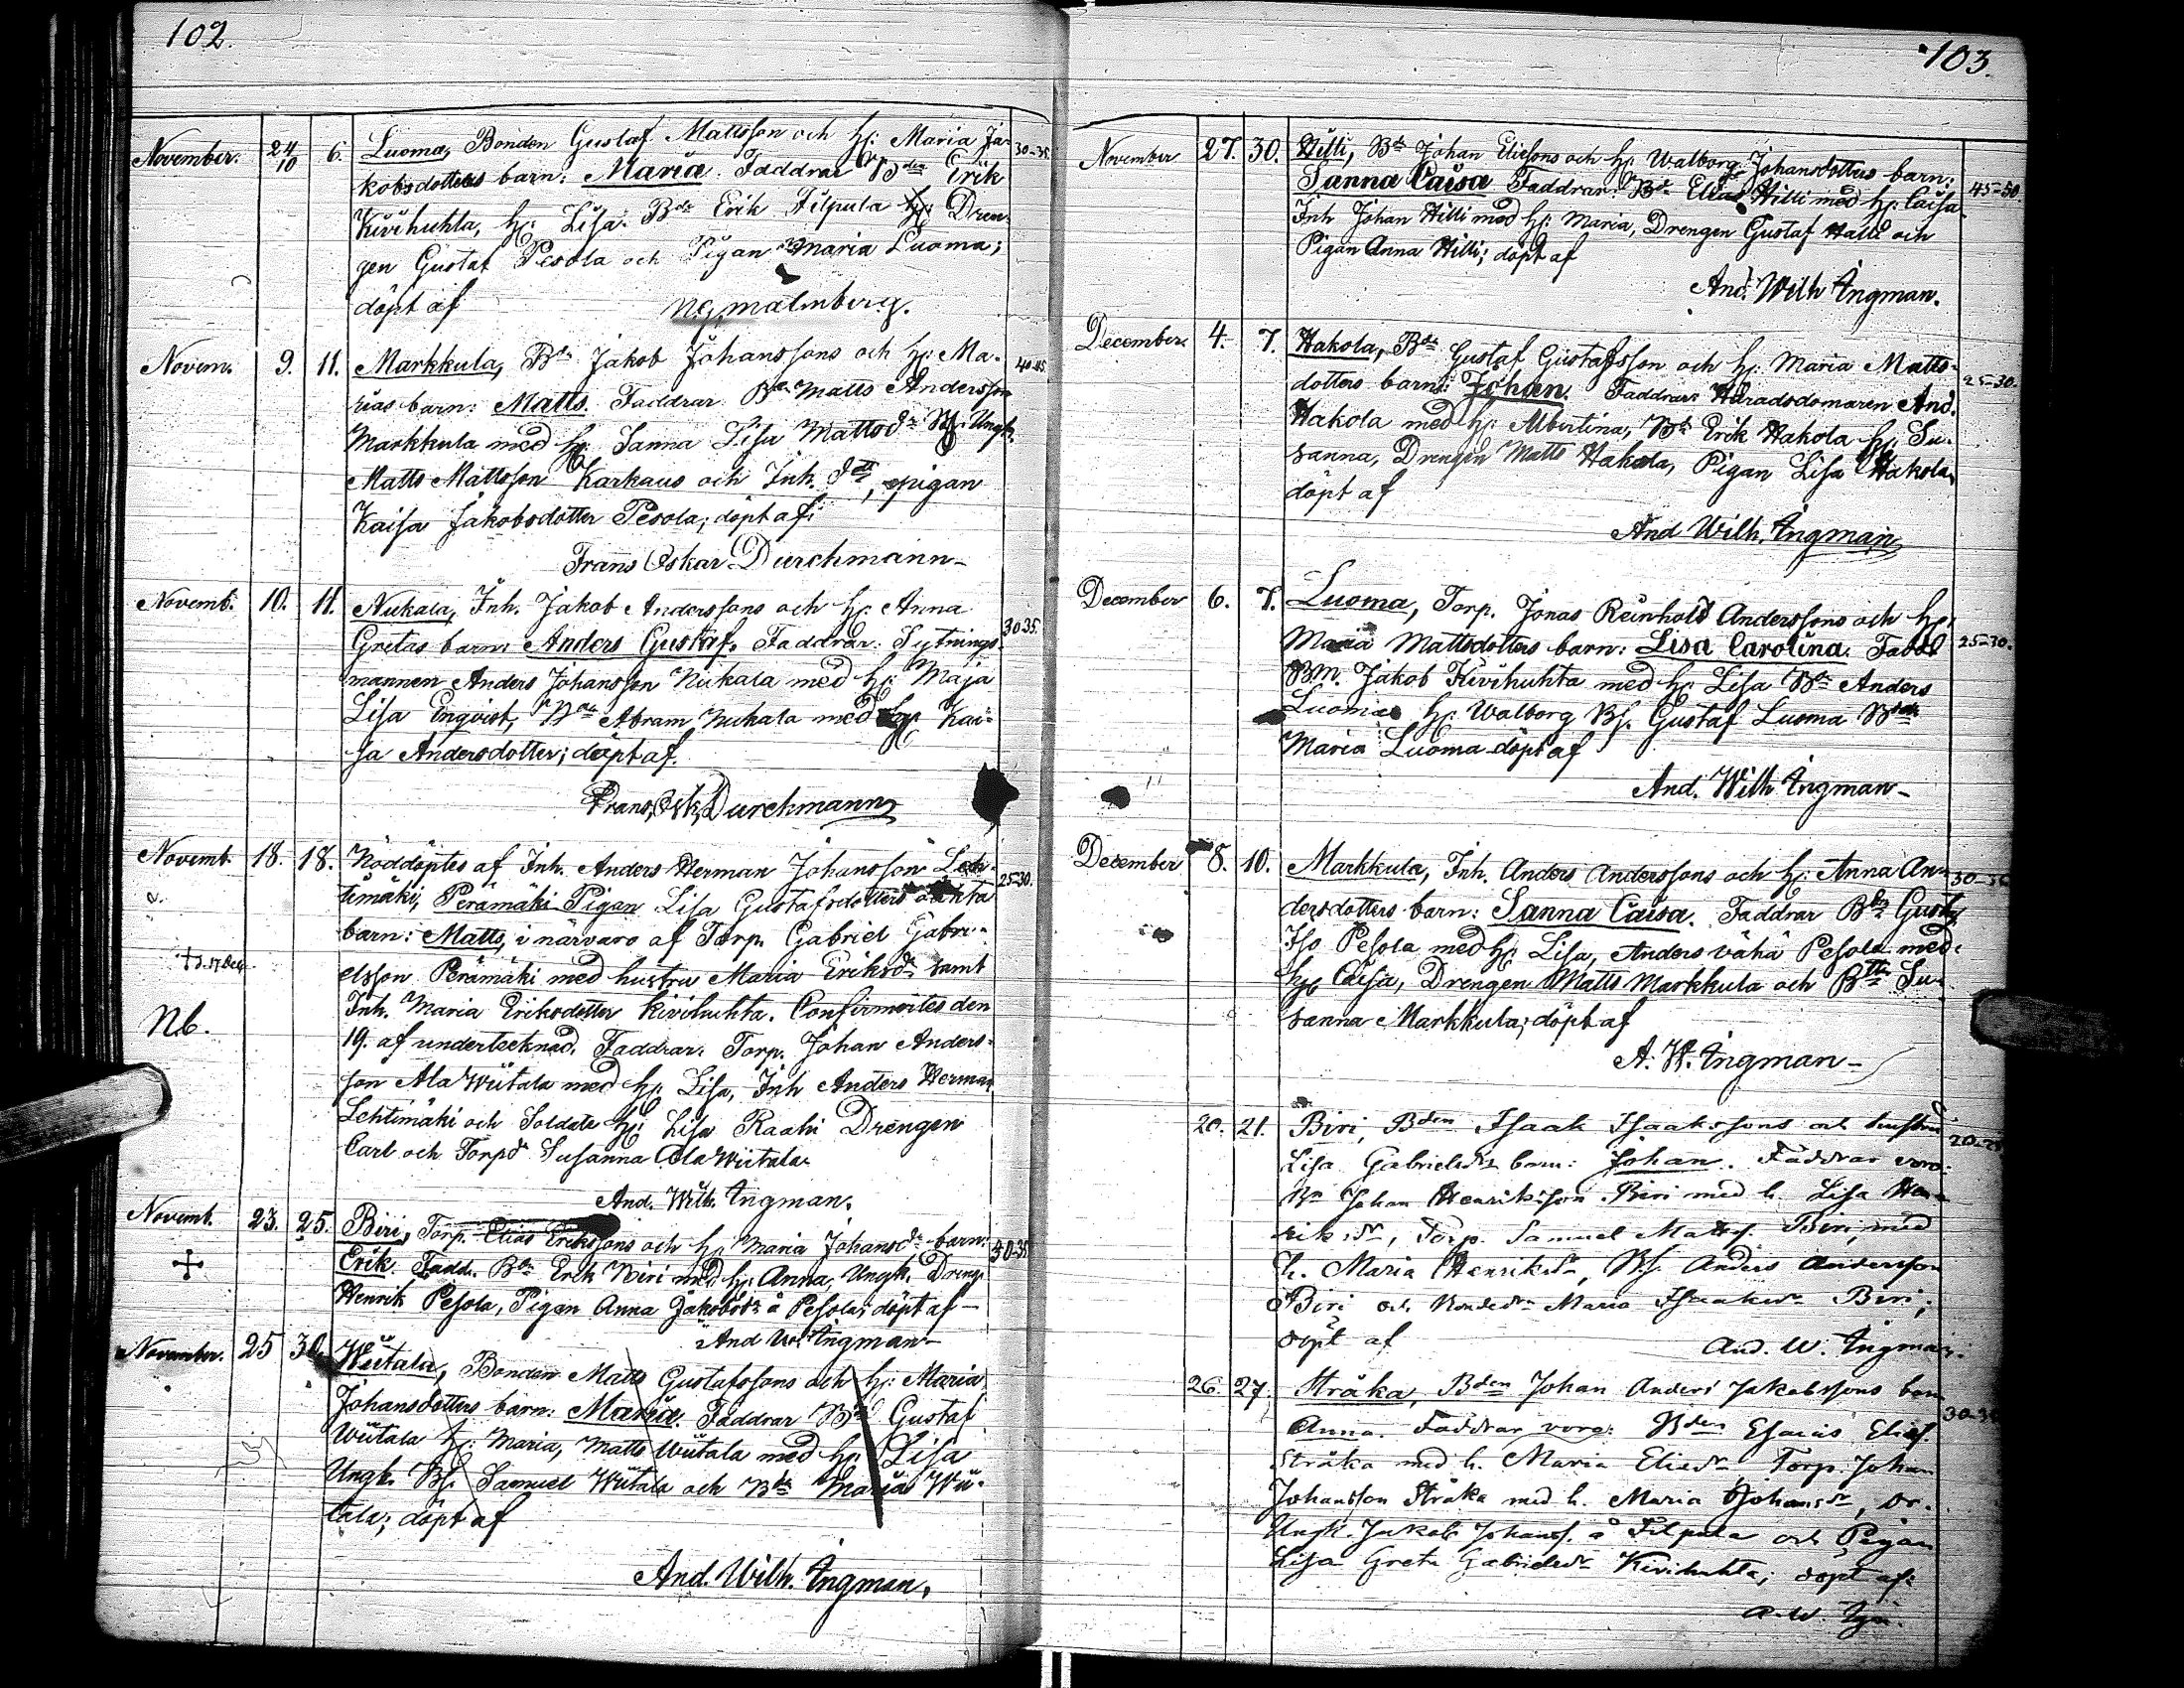 102.
November. 24/10 6. Luoma, Bonden Gustaf Mattsson och hj: Maria Ja- 30-35.
kobsdotters barn: Maria. Faddrar Bden Erik
Kivihuhta, hj: Lisa. Bde Erik Filpula hj: Dren-
gen Gustaf Pesola och Pigan Maria Luoma;
döpt af N.G. Malmberg.
Novem. 9. 11. Markkula, Bdn Jakob Johanssons och hj: Ma- 40-45.
rias barn: Matts. Faddrar Bdn Matts Andersson
Markkula med hj: Sanna Lisa Mattsdr Ungk.
Matts Mattsson Karkaus och Inh. , pigan
Kaisa Jakobsdotter Pesola; döpt af:
Frans Oskar Durchmann-
Novemb. 10. 11. Nukala, Inh. Jakob Anderssons och hj: Anna
Gretas barn: Anders Gustaf. Faddrar: Sytnings- 30 35.
mannen Anders Johansson Nukala med hj: Maja
Lisa Enqvist, Bdn Abram Nukala med hj: Kai-
sa Andersdotter; döpt af.
Frans Osk. Durchmann
Novemb. 18. 18. Nöddöptes af Inh. Anders Herman Johansson Leh- 25-30.
timäki, Perämäki Pigan Lisa Gustafsdotters oäkta
barn: Matts, i närvaro af Torp. Gabriel Gabri-
elsson Perämäki med hustru Maria Eriksdr samt
Nb. Inh. Maria Eriksdotter Kivihuhta. Confirmertes den
19. af undertecknad. Faddrar: Torp. Johan Anders-
son Ala Wiitala med hj: Lisa, Inh Anders Herman
Lehtimäki och Soldats hj: Lisa Raahi Drengen
Carl och Torpdr Susanna Ala Wiitala.
And. Wilh. Ingman.
Novemb. 23. 25. Biri, Torp. Elias Erikssons och hj: Maria Johansdr barn: 30-35.
Erik. Fadd. Bdn Erik Biri med hj: Anna, Ungk. Dreng.
Henrik Pesola, Pigan Anna Jakobsdr å Pesola; döpt af-
And Wilh Ingman-
November. 25 30. Wiitala, Bonden Matts Gustafssons och hj: Maria
Johansdotters barn: Maria. Faddrar Bdn Gustaf
Wiitala hj: Maria, Matts Wiitala med hj: Lisa
Ungk. Bs. Samuel Wiitala och Bdr Maria Wii-
tala; döpt af
And. Wilh. Ingman.
103.
November 27. 30. Hilli, Bdn Johan Eliessons och hj: Walborg Johansdotters barn:
Sanna Caisa Faddrar: Bdn Elias Hilli med hj: Caisa. 45-50.
Inh Johan Hilli med hj: Maria, Drengen Gustaf Hilli och
Pigan Anna Hilli; döpt af
And. Wilh Ingman.
December 4. 7. Hakola, Bdn Gustaf Gustafsson och hj: Maria Matts-
dotters barn: Johan. Faddrar: Häradsdomaren And. 25-30.
Hakola med hj: Albertina, Bdn Erik Hakola hj: Su-
sanna, Drengen Matts Hakola, Pigan Lisa Hakola,
döpt af
And Wilh. Ingman
December 6. 7. Luoma, Torp. Jonas Reinhold Anderssons och hj:
Maria Mattsdotters barn: Lisa Carolina. Fadd 25-30.
Bm. Jakob Kivihuhta med hj: Lisa Bdn Anders
Luoma hj: Walborg Bs. Gustaf Luoma Bdr
Maria Luoma döpt af
And. Wilh Ingman-
December 8. 10. Markkula, Inh. Anders Anderssons och hj: Anna An- 30-35
dersdotters barn: Sanna Caisa. Faddrar Bdn Gustaf
Iso Pesola med hj: Lisa, Anders vähä Pesola med
hj: Caisa, Drengen Matts Markkula och Bdtr Su-
sanna Markkula; döpt af
A. W. Ingman-
20. 21. Biri, Bden Isaak Isaakssons och hustru 20-25
Lisa Gabrielsdrs barn: Johan. Faddrar voro:
Bn Johan Henriksson Biri med h. Lisa Hen-
riksdr, Torp. Samuel Mattss. Biri, med
h. Maria Henriksdr, Bs. Anders Andersson
Biri och Bondedr Maria Isaaksdr Biri;
döpt af And. W. Ingman.
26. 27. Stråka, Bden Johan Anders Jakobssons barn
Anna. Faddrar voro: Bden Esaias Elias. 30-35
Stråka med h. Maria Eliedr Torp. Johan
Johansson Stråka med h. Maria Johansdr,
Ungk. Jakob Johanss. å Filpula och Pigan
Lisa Greta Gabrielsdr Kivihuhta; döpt af:
A. W. Ign.